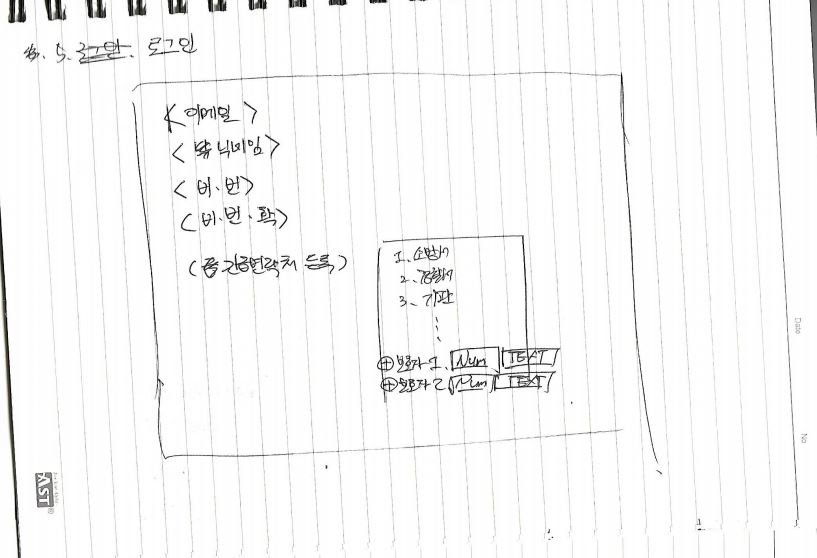 5. 로그인. 로그인
<이메일>
<닉네임>
<비.번>
<비.번.확>
(긴급연락처 등록)
1. 소방서
2. 경찰서
3. 기관
⊕ 보호자 1. Num TEXT
⊕ 보호자 2 Num TEXT
Date
No
AST